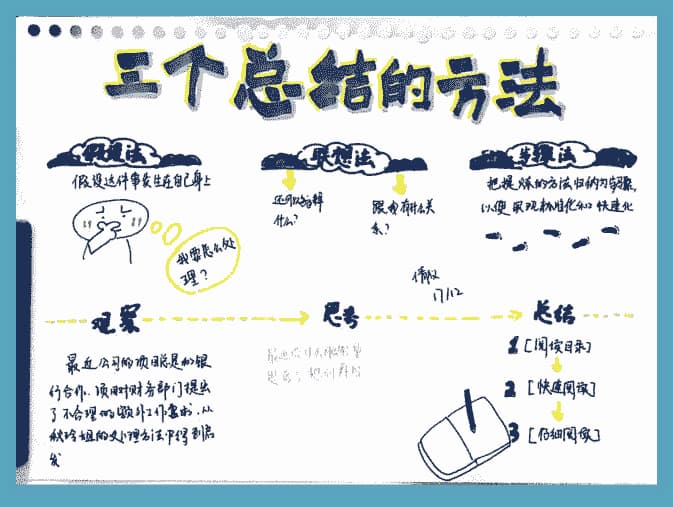 三个总结的方法
假设法
假设这件事发生在自己身上
我要怎么处
理？
联想法
还可以怎样
什么？
跟我有什么关
系？
步骤法
把提炼的方法归纳为步骤，
以便实现标准化和快速化
17/12
观察
思考
总结
最近公司的项目总是和银
行合作，项目对财务部门提出
了不合理的额外工作要求，从
姐的处理方法中得到启
发
1 [阅读目录]
2 [快速阅读]
3 [仔细阅读]